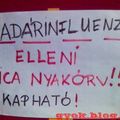 ADÁRINFLUENZ
ELLENI
ICA NYAKÖRV!!
KAPHATÓ!
gyok.blog